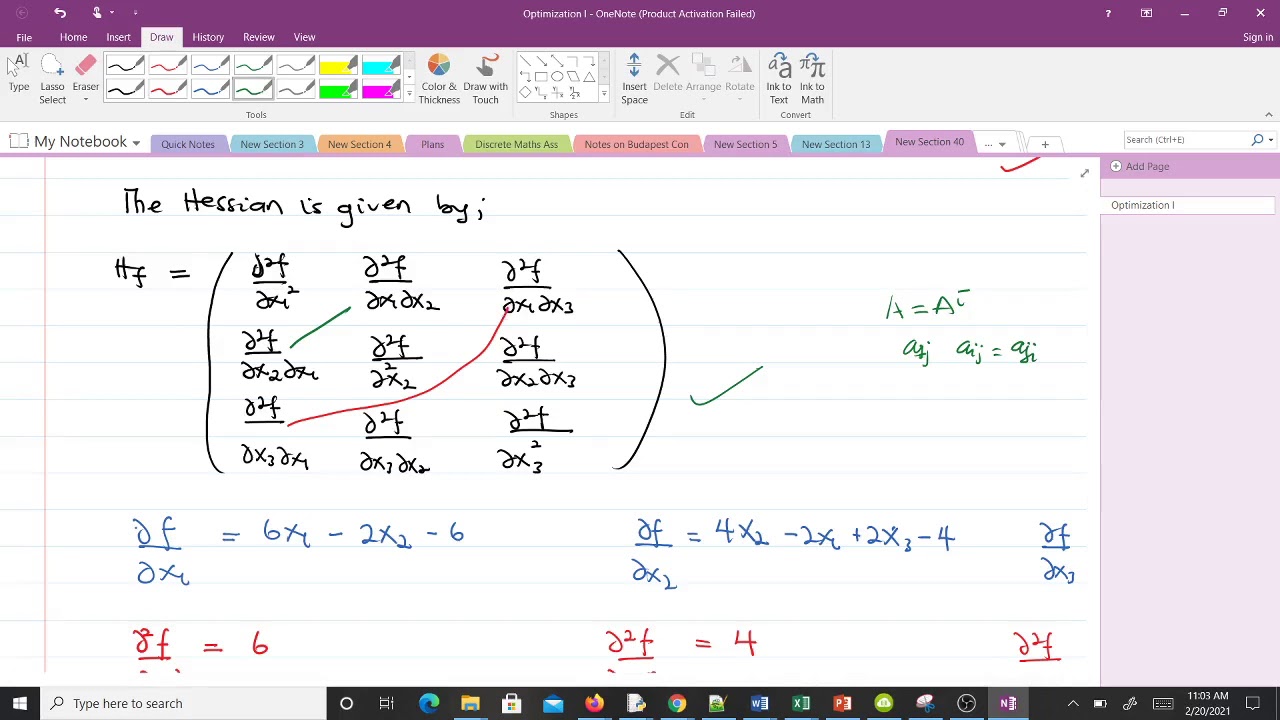 Optimization I - OneNote (Product Activation Failed)
File Home Insert Draw History Review View Sign in
Type Lasso Select Eraser Color & Thickness Draw with Touch Insert Space Delete Arrange Rotate Ink to Text Ink to Math
Tools Shapes Edit Convert
My Notebook Quick Notes New Section 3 New Section 4 Plans Discrete Maths Ass Notes on Budapest Con New Section 5 New Section 13 New Section 40 ... Search (Ctrl+E)
Add Page
Optimization I
The Hessian is given by;
Hf = ( ∂²f/∂x₁² ∂²f/∂x₁∂x₂ ∂²f/∂x₁∂x₃
∂²f/∂x₂∂x₁ ∂²f/∂²x₂ ∂²f/∂x₂∂x₃
∂²f/∂x₃∂x₁ ∂²f/∂x₃∂x₂ ∂²f/∂x₃² )
A = Aᵀ
aij aij = aji
∂f/∂x₁ = 6x₁ - 2x₂ - 6 ∂f/∂x₂ = 4x₂ - 2x₁ + 2x₃ - 4 ∂f/∂x₃
∂²f = 6 ∂²f = 4 ∂²f
Type here to search
11:03 AM
2/20/2021